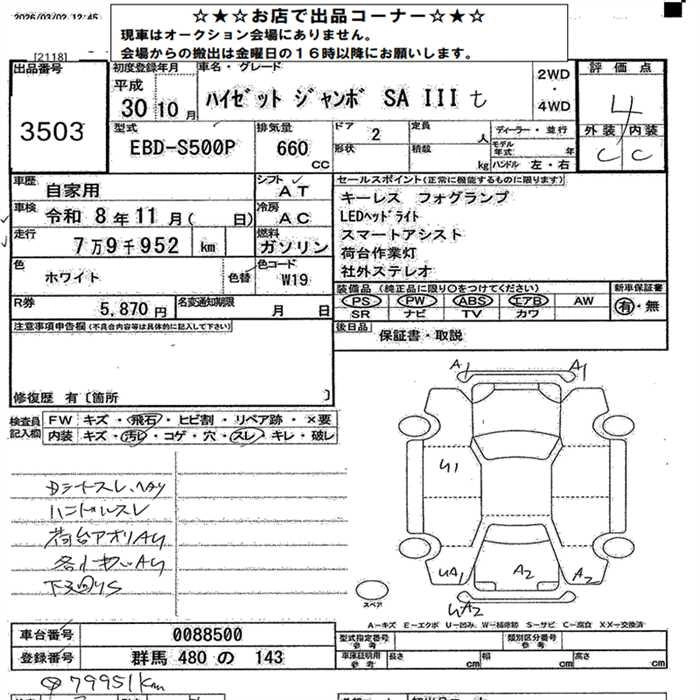 2026/03/02 12:45
☆★☆お店で出品コーナー☆★☆
現車はオークション会場にありません。
会場からの搬出は金曜日の16時以降にお願いします。
[2118]
出品番号
3503
初度登録年月
平成
30 10月
車名・グレード
ハイゼット ジャンボ SA III t
2WD
・
4WD
評価点
4
外装 内装
C C
型式
EBD-S500P
排気量
660
CC
ドア 2
形状
定員 人
積載 kg
ディーラー・並行
モデル年式 年
ハンドル 左・右
車歴
自家用
シフト
AT
車検
令和 8年11月( 日)
冷房
AC
走行
7万9千952 km
燃料
ガソリン
色
ホワイト
色替
色コード
W19
R券
5,870円
名変通知期限
月 日
セールスポイント(正常に機能するものに限ります)
キーレス フォグランプ
LEDヘッドライト
スマートアシスト
荷台作業灯
社外ステレオ
装備品(純正品に限り○をつけてください)
PS PW ABS エアB AW
SR ナビ TV カワ
新車保証書
有・無
後日品
保証書・取説
注意事項申告欄(不具合内容等は具体的に記入して下さい)
修復歴 有〔箇所 〕
検査員
記入欄
FW キズ・飛石・ヒビ割・リペア跡・×要
内装 キズ・汚レ・コゲ・穴・スレ・キレ・破レ
Dシートスレ、ヘタリ
ハンドルスレ
下廻りS
A1 A1
U1
UA1 A2 A2
スペア
A-キズ E-エクボ U-凹み W-補修跡 S-サビ C-腐食 XX-交換済
車台番号
0088500
登録番号
群馬 480 の 143
型式指定番号
参考
類別区分番号
参考
車庫証明用
参考
長さ cm
幅 cm
高さ cm
79951km